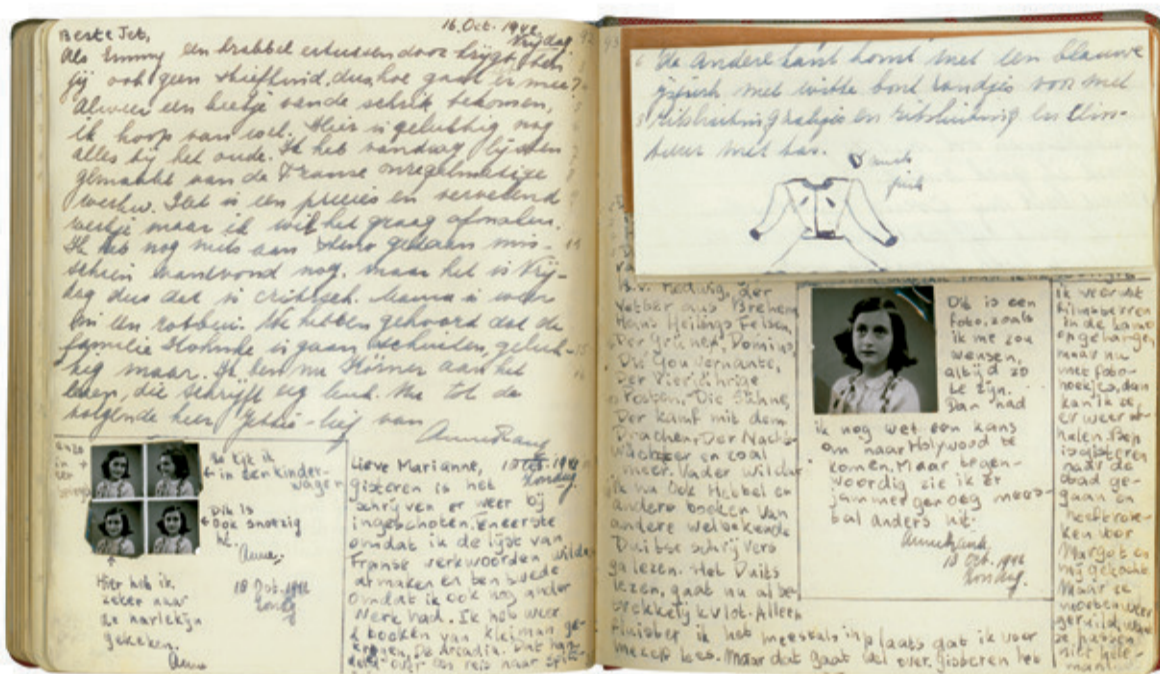 16 Oct. 1942
Beste Jet, Vrijdag
Als Emmy een krabbel ertussen door krijgt, ben
jij ook geen stiefkind, dus hoe gaat er mee?
Alweer een beetje van de schrik bekomen,
ik hoop van wel. Hier is gelukkig nog
alles bij het oude. Ik heb vandaag lijsten
gemaakt van de Franse onregelmatige
werkw. Dat is een precies en vervelend
werkje maar ik wil het graag afmaken.
Ik heb nog niets aan steno gedaan mis-
schien vanavond nog, maar het is Vrij-
dag dus dat is critisch. Mama is weer
in een
We hebben gehoord dat de
familie is gaan geluk-
kig maar. Ik ben nu Körner aan het
lezen, die schrijft erg leuk. Nu tot de
volgende keer Jettie-lief van
Anne Frank
Zo kijk ik
in een kinder-
wagen
Dit is
ook snoezig
hè.
Anne.
Hier heb ik
zeker naar
de harlekijn
gekeken.
Anne
18 Oct. 1942
Zondag
Lieve Marianne, 18 Oct. 1942
Zondag.
gisteren is het
schrijven er weer bij
ingeschoten. Ten eerste
omdat ik de lijst van
Franse werkwoorden wilde
afmaken en ten tweede
omdat ik ook nog ander
werk had. Ik heb weer
2 boeken van Kleiman ge-
kregen, De Arcadia. Dat han-
delt over een reis naar Spits-
92
De andere kant komt met een blauwe
met witte bont randjes voor met
ritssluiting, zakjes en ritssluiting en Clin-
met tas.
B.v. Hedwig, der
Vetter aus Bremen,
Hans Heilings Felsen,
Der Grüne Domino,
Die Gouvernante,
Der Vierjährige
Posten, Die Sühne,
Der Kampf mit dem
Drachen, Der Nacht-
wächter en zoal
meer. Vader wil dat
ik nu ook Hebbel en
andere boeken van
andere welbekende
Duitse schrijvers
ga lezen. Het Duits
lezen, gaat nu al be-
trekkelijk vlot. Alleen
fluister ik het meestal in plaats dat ik voor
mezelf lees. Maar dat gaat wel over. gisteren heb
Dit is een
foto, zoals
ik me zou
wensen,
altijd zo
te zijn.
Dan had
ik nog wel een kans
om naar Holywood te
komen. Maar tegen-
woordig zie ik er
jammer genoeg mees-
tal anders uit.
Anne Frank.
18 Oct. 1942
Zondag.
ik weer wat
filmsterren
in de kamer
opgehangen
maar nu
met foto-
hoekjes, dan
kan ik ze
er weer af-
halen. Bep
is gisteren
naar de
stad ge-
gaan en
heeft rok-
ken voor
Margot en
mij gekocht
Maar ze
moeten weer
geruild, want
ze passen
niet hele-
maal.